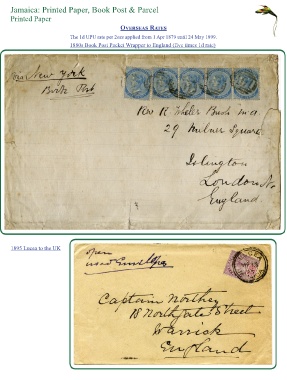 Jamaica: Printed Paper, Book Post & Parcel
Printed Paper
Overseas Rates
The 1d UPU rate per 2ozs applied from 1 Apr 1879 until 24 May 1899.
1880s Book Post Packet Wrapper to England (five times 1d rate)
Via New York
Book Post
Rev R Wheler Bush M.A
29 Milner Square
Islington
London N.
England
1895 Lucea to the UK
open
Captain Northey
18 Northgate Street
Warwick
England